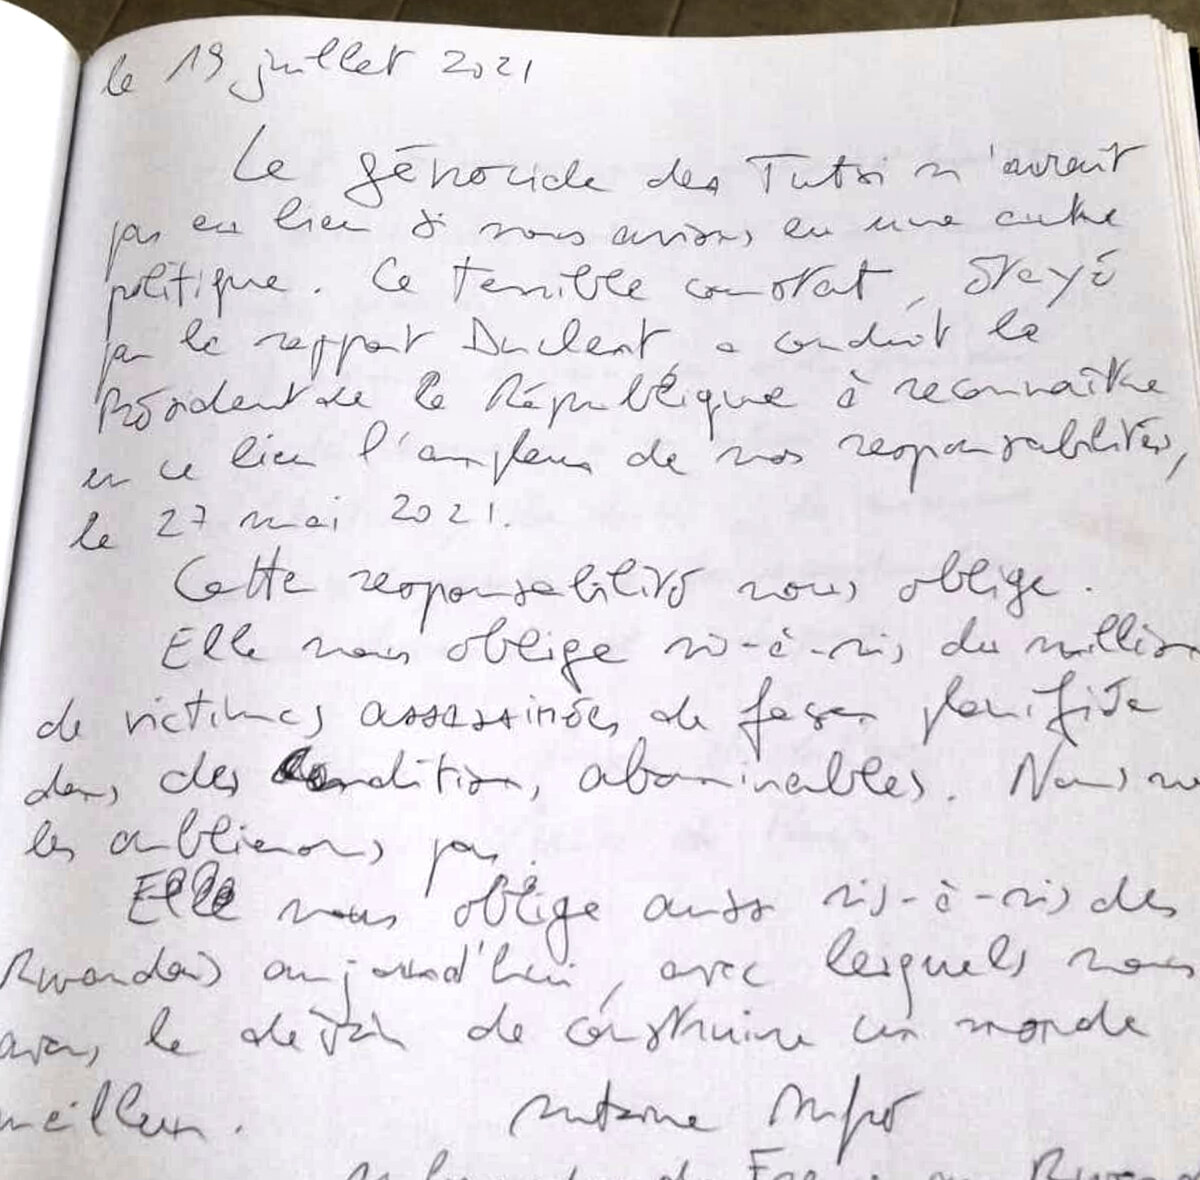 le 19 juillet 2021
Le génocide des Tutsi n'aurait
pas eu lieu si nous avions eu une autre
politique. Ce terrible constat, étayé
par le rapport Duclert, a conduit le
Président de la République à reconnaître
en ce lieu l'ampleur de nos responsabilités,
le 27 mai 2021.
Cette responsabilité nous oblige.
Elle nous oblige vis-à-vis du million
de victimes assassinées de façon planifiée
dans des conditions abominables. Nous ne
les oublierons pas.
Elle nous oblige aussi vis-à-vis des
Rwandais aujourd'hui, avec lesquels nous
avons le devoir de construire un monde
meilleur. Antoine Anfré
Ambassadeur de France au Rwanda